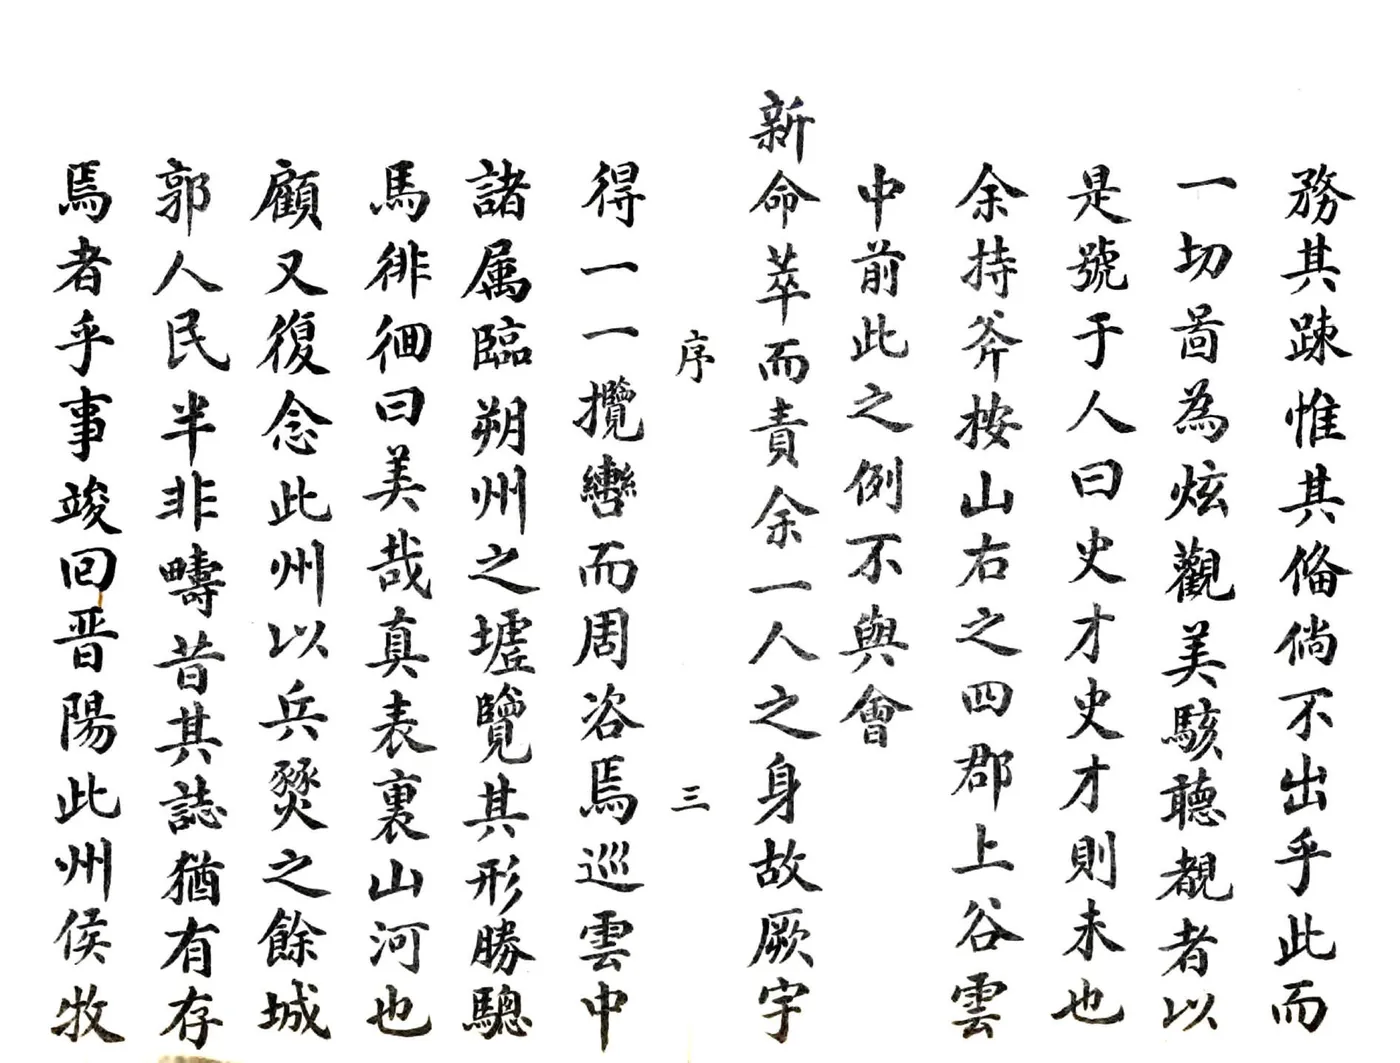 務其踈惟其偹倘不出乎此而
一切啚為炫觀美駭聽覩者以
是號于人曰史才史才則未也
余持斧按山右之四郡上谷雲
中前此之例不與會
新命萃而責余一人之身故厥宇
序 三
得一一攬轡而周咨焉巡雲中
諸属臨朔州之墟覽其形勝驄
馬徘徊曰美哉真表裏山河也
顧又復念此州以兵燹之餘城
郭人民半非疇昔其誌猶有存
焉者乎事竣回晋陽此州侯牧